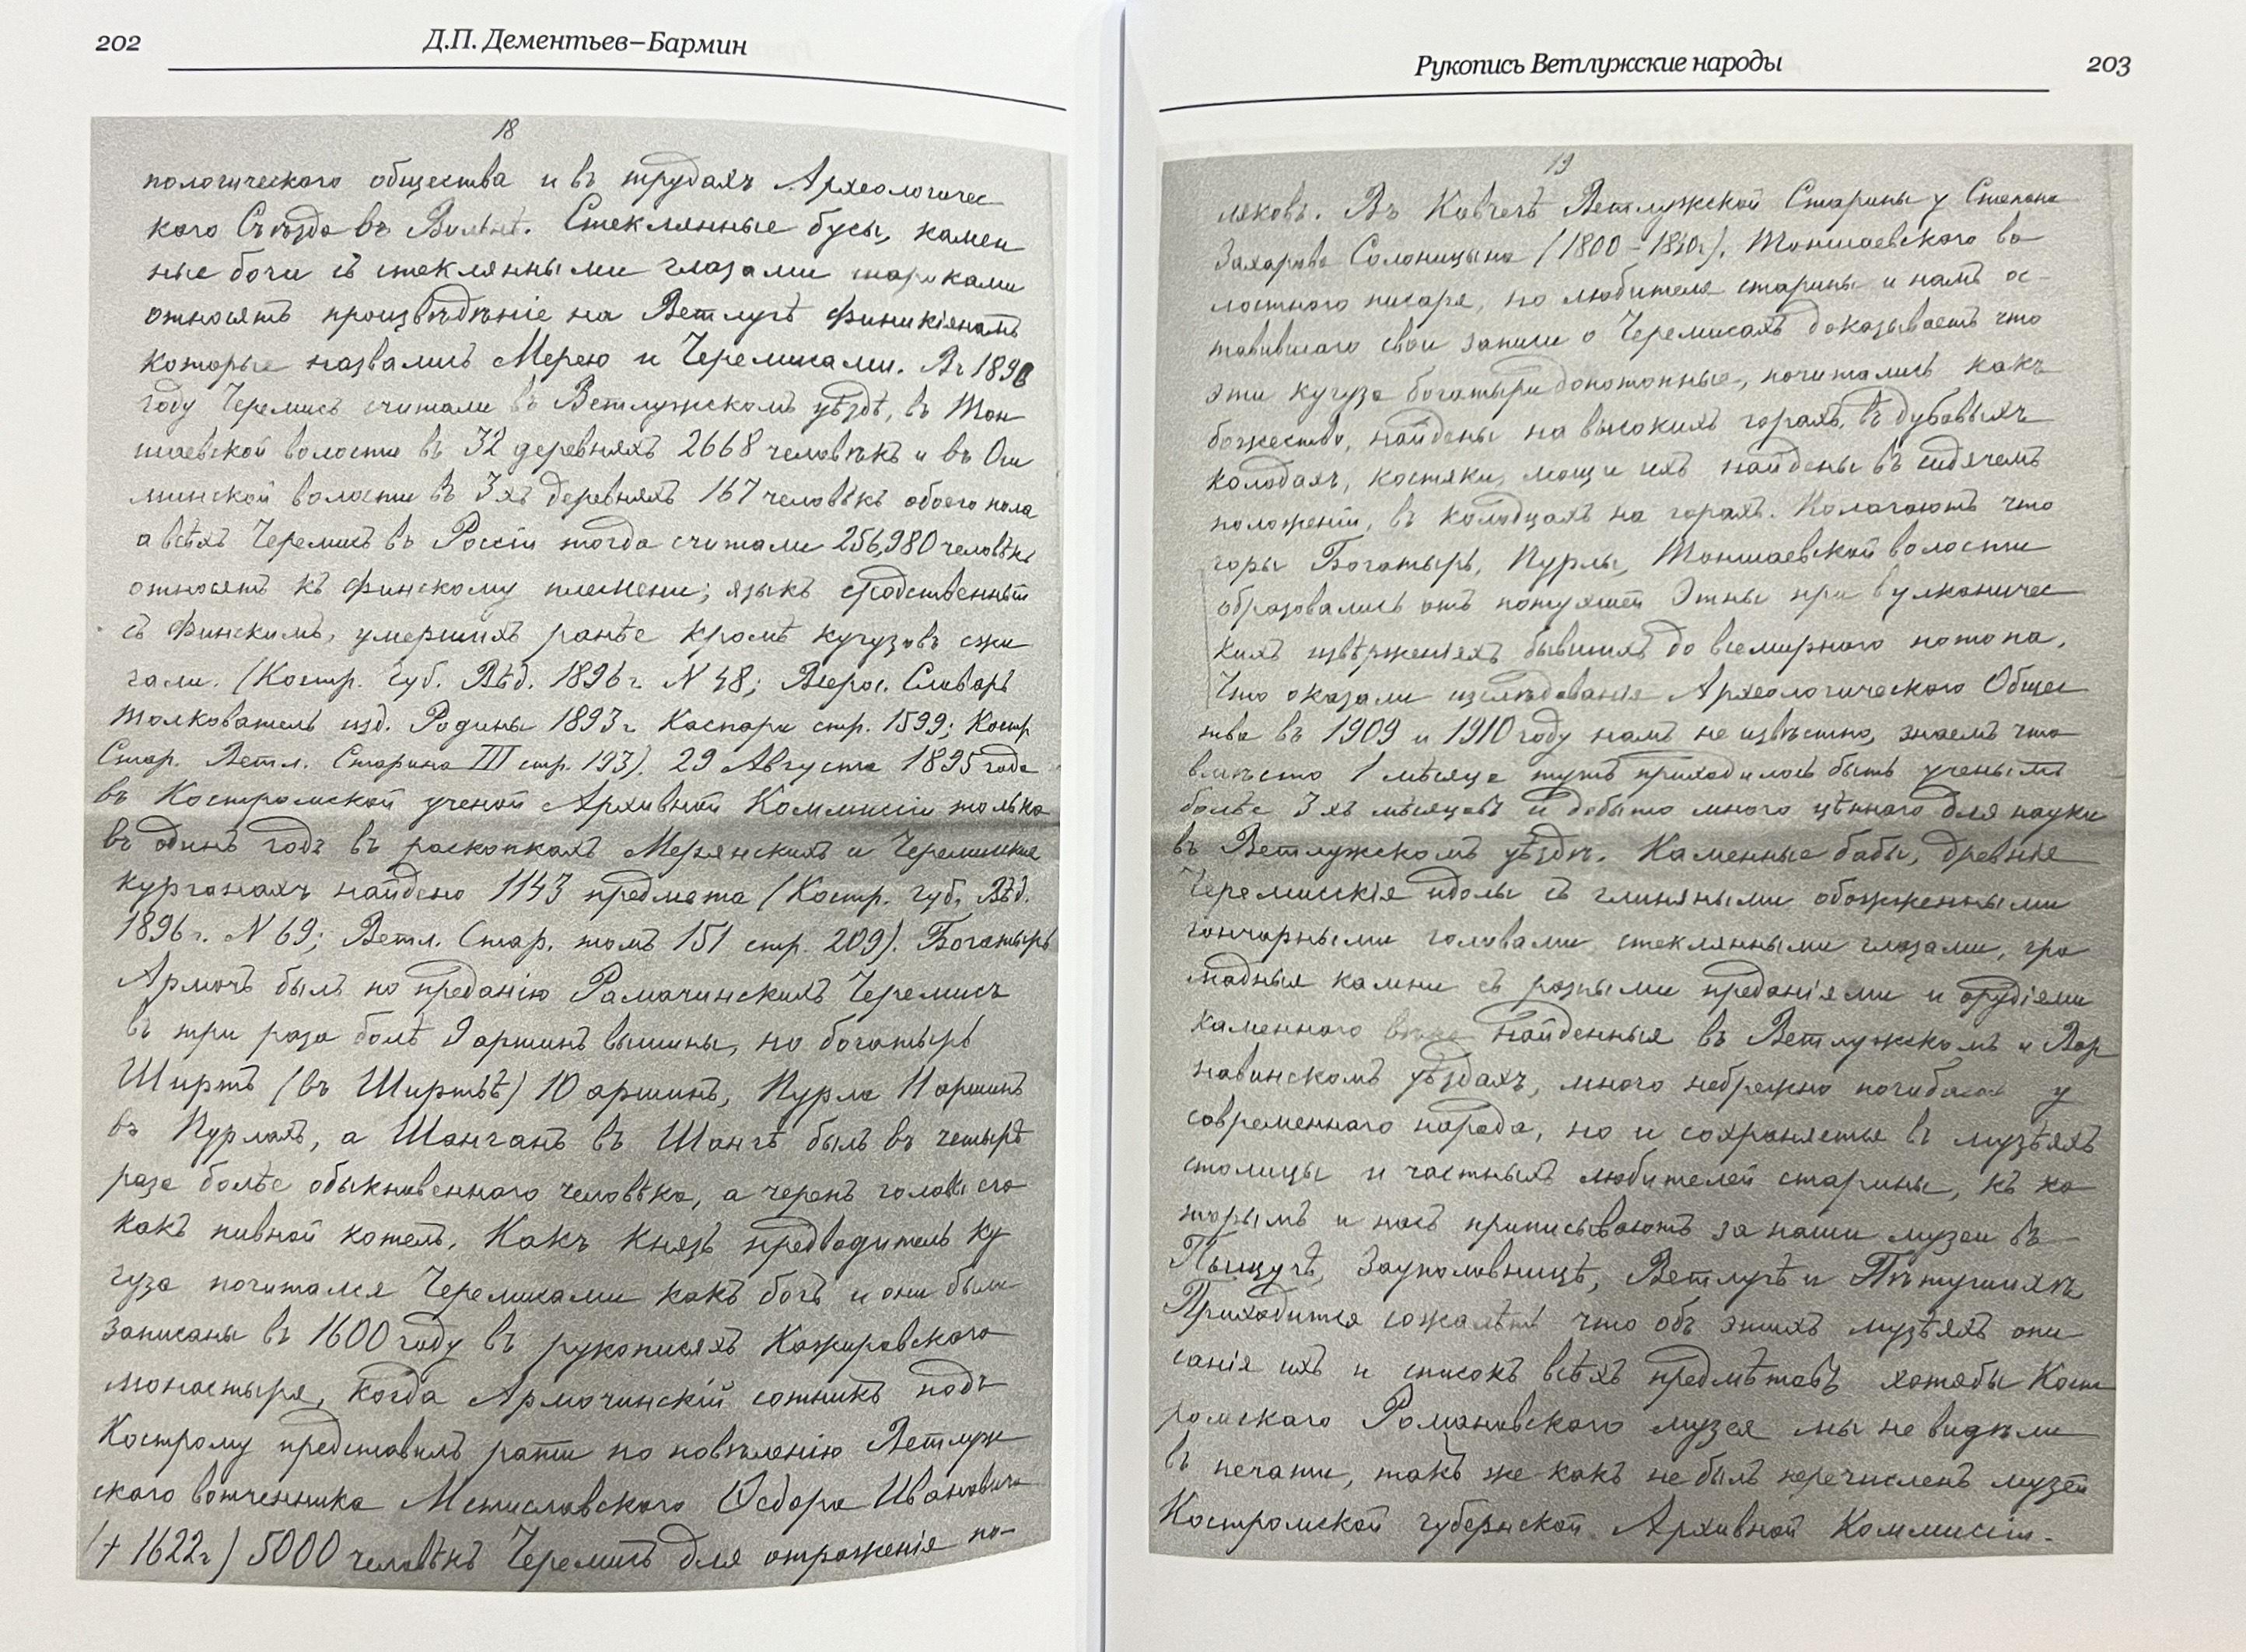 202
Д.П. Дементьев–Бармин
18
пологическаго общества и въ трудахъ Археологичес
каго Съѣзда въ Вильнѣ. Стеклянные бусы, камен
ные боги съ стеклянными глазами стариками
относятъ произвѣдѣніе на Ветлугѣ Финикіянамъ
которые назвались Мерею и Черемисами. Въ 1890
году Черемисъ считали въ Ветлужскомъ уѣздѣ, въ Тон
шаевской волости въ 32 деревняхъ 2668 человѣкъ и въ Ош
минской волости въ 3хъ деревняхъ 167 человѣкъ обоего пола
а всѣхъ Черемисъ въ Россіи тогда считали 256,980 человѣкъ
относятъ къ финскому племени; языкъ сродственный
съ Финскимъ, умершихъ ранѣе кромѣ кугузовъ сжи
гали. (Костр. Губ. Вѣд. 1896 г. N 48; Всерос. Словарь
Толкователь изд. Родины 1893 г. Каспари стр. 1599; Костр
Стар. Ветл. Старина III стр. 193). 29 Августа 1895 года
въ Костромской ученой Архивной Коммисіи только
въ одинъ годъ въ раскопкахъ Мерянскихъ и Черемиских
курганахъ найдено 1143 предмета (Костр. губ. Вѣд.
1896 г. N 69; Ветл. Стар. томъ 151 стр. 209). Богатырь
Армочъ былъ по преданію Рамачинскихъ Черемисъ
въ три раза болѣ 9 аршинъ вышины, но богатырь
Ширтъ (въ Ширтѣ) 10 аршинъ, Пурла 11 аршинъ
въ Пурлахъ, а Шанганъ въ Шангѣ былъ въ четырѣ
раза болѣе обыкновеннаго человѣка, а черепъ головы его
какъ пивной котелъ. Какъ Князь предводитель Ку
гуза почитался Черемисами какъ богъ и они были
записаны въ 1600 году въ рукописяхъ Кажировскаго
монастыря, когда Армочинскій сотникъ подъ
Кострому представилъ рати по повѣленію Ветлуж
скаго вотчинника Мстиславскаго Ѳедора Ивановича
(† 1622 г) 5000 человѣкъ Черемисъ для отраженія по-
Рукопись Ветлужские народы
203
19
ляковъ. Въ Ковчегѣ Ветлужской Старины у Степана
Захарова Солоницына (1800 - 1840 г). Тоншаевскаго во
лостного писаря, но любителя старины и намъ ос-
тавившаго свои записи о Черемисахъ доказываетъ что
эти кугуза богатыри допотопные, почитались какъ
божества, найдены на высокихъ горахъ, въ дубовыхъ
колодахъ, костяки, мощи ихъ найдены въ сидячемъ
положеніи, въ колодцахъ на горахъ. Полагаютъ что
горы Богатырь, Пурлы, Тоншаевской волости
образовались отъ потухшей Этны при вулканичес
кихъ извѣрженіяхъ бывшихъ до всемирнаго потопа,
Что оказали изслѣдованія Археологическаго Общес
тва въ 1909 и 1910 году намъ не извѣстно, знаемъ что
вмѣсто 1 мѣсяца тутъ приходилось быть ученымъ
болѣе 3хъ мѣсяцовъ и добыто много цѣннаго для науки
въ Ветлужскомъ уѣздѣ. Каменные бабы, древнія
Черемисскія идолы съ глиняными обожженными
гончарными головами, стеклянными глазами, гро
мадныя камни съ разными преданіями и орудіями
каменнаго найденныя въ Ветлужскомъ и Вар
навинскомъ уѣздахъ, много небрежно погибаетъ у
современнаго народа, но и сохраняется въ музѣяхъ
столицы и частныхъ любителей старины, къ ко
торымъ и насъ приписываютъ за наши музеи въ
Пыщугѣ, Заукoловницѣ, Ветлугѣ и Пѣтушихѣ
Приходится сожалѣть что объ этихъ музѣяхъ опи
санія ихъ и списокъ всѣхъ предмѣтовъ хотябы Кост
ромскаго Романовскаго музея мы не видѣли
въ печати, такъ же какъ не былъ перечисленъ музей
Костромской губернской Архивной Коммисіи.